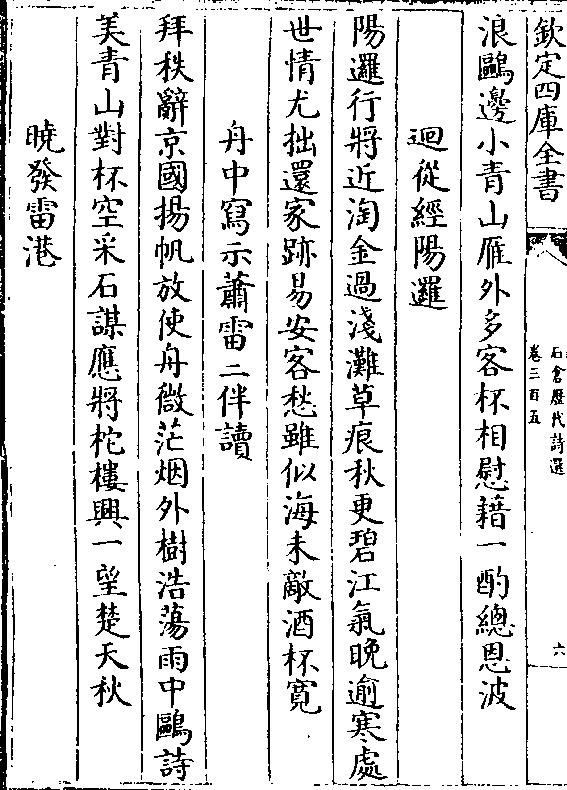 欽定四庫全書
石倉歷代詩選
卷三百五
六
浪鷗邊小青山雁外多客杯相慰藉一酌總恩波
迴從經陽邏
陽邏行將近淘金過淺灘草痕秋更碧江氣晚逾寒處
世情尤拙還家跡易安客愁雖似海未敵酒杯寛
舟中寫示蕭雷二伴讀
拜秩辭京國揚帆放使舟微茫烟外樹浩蕩雨中鷗詩
美青山對杯空采石謀應將柁樓興一望楚天秋
曉發雷港